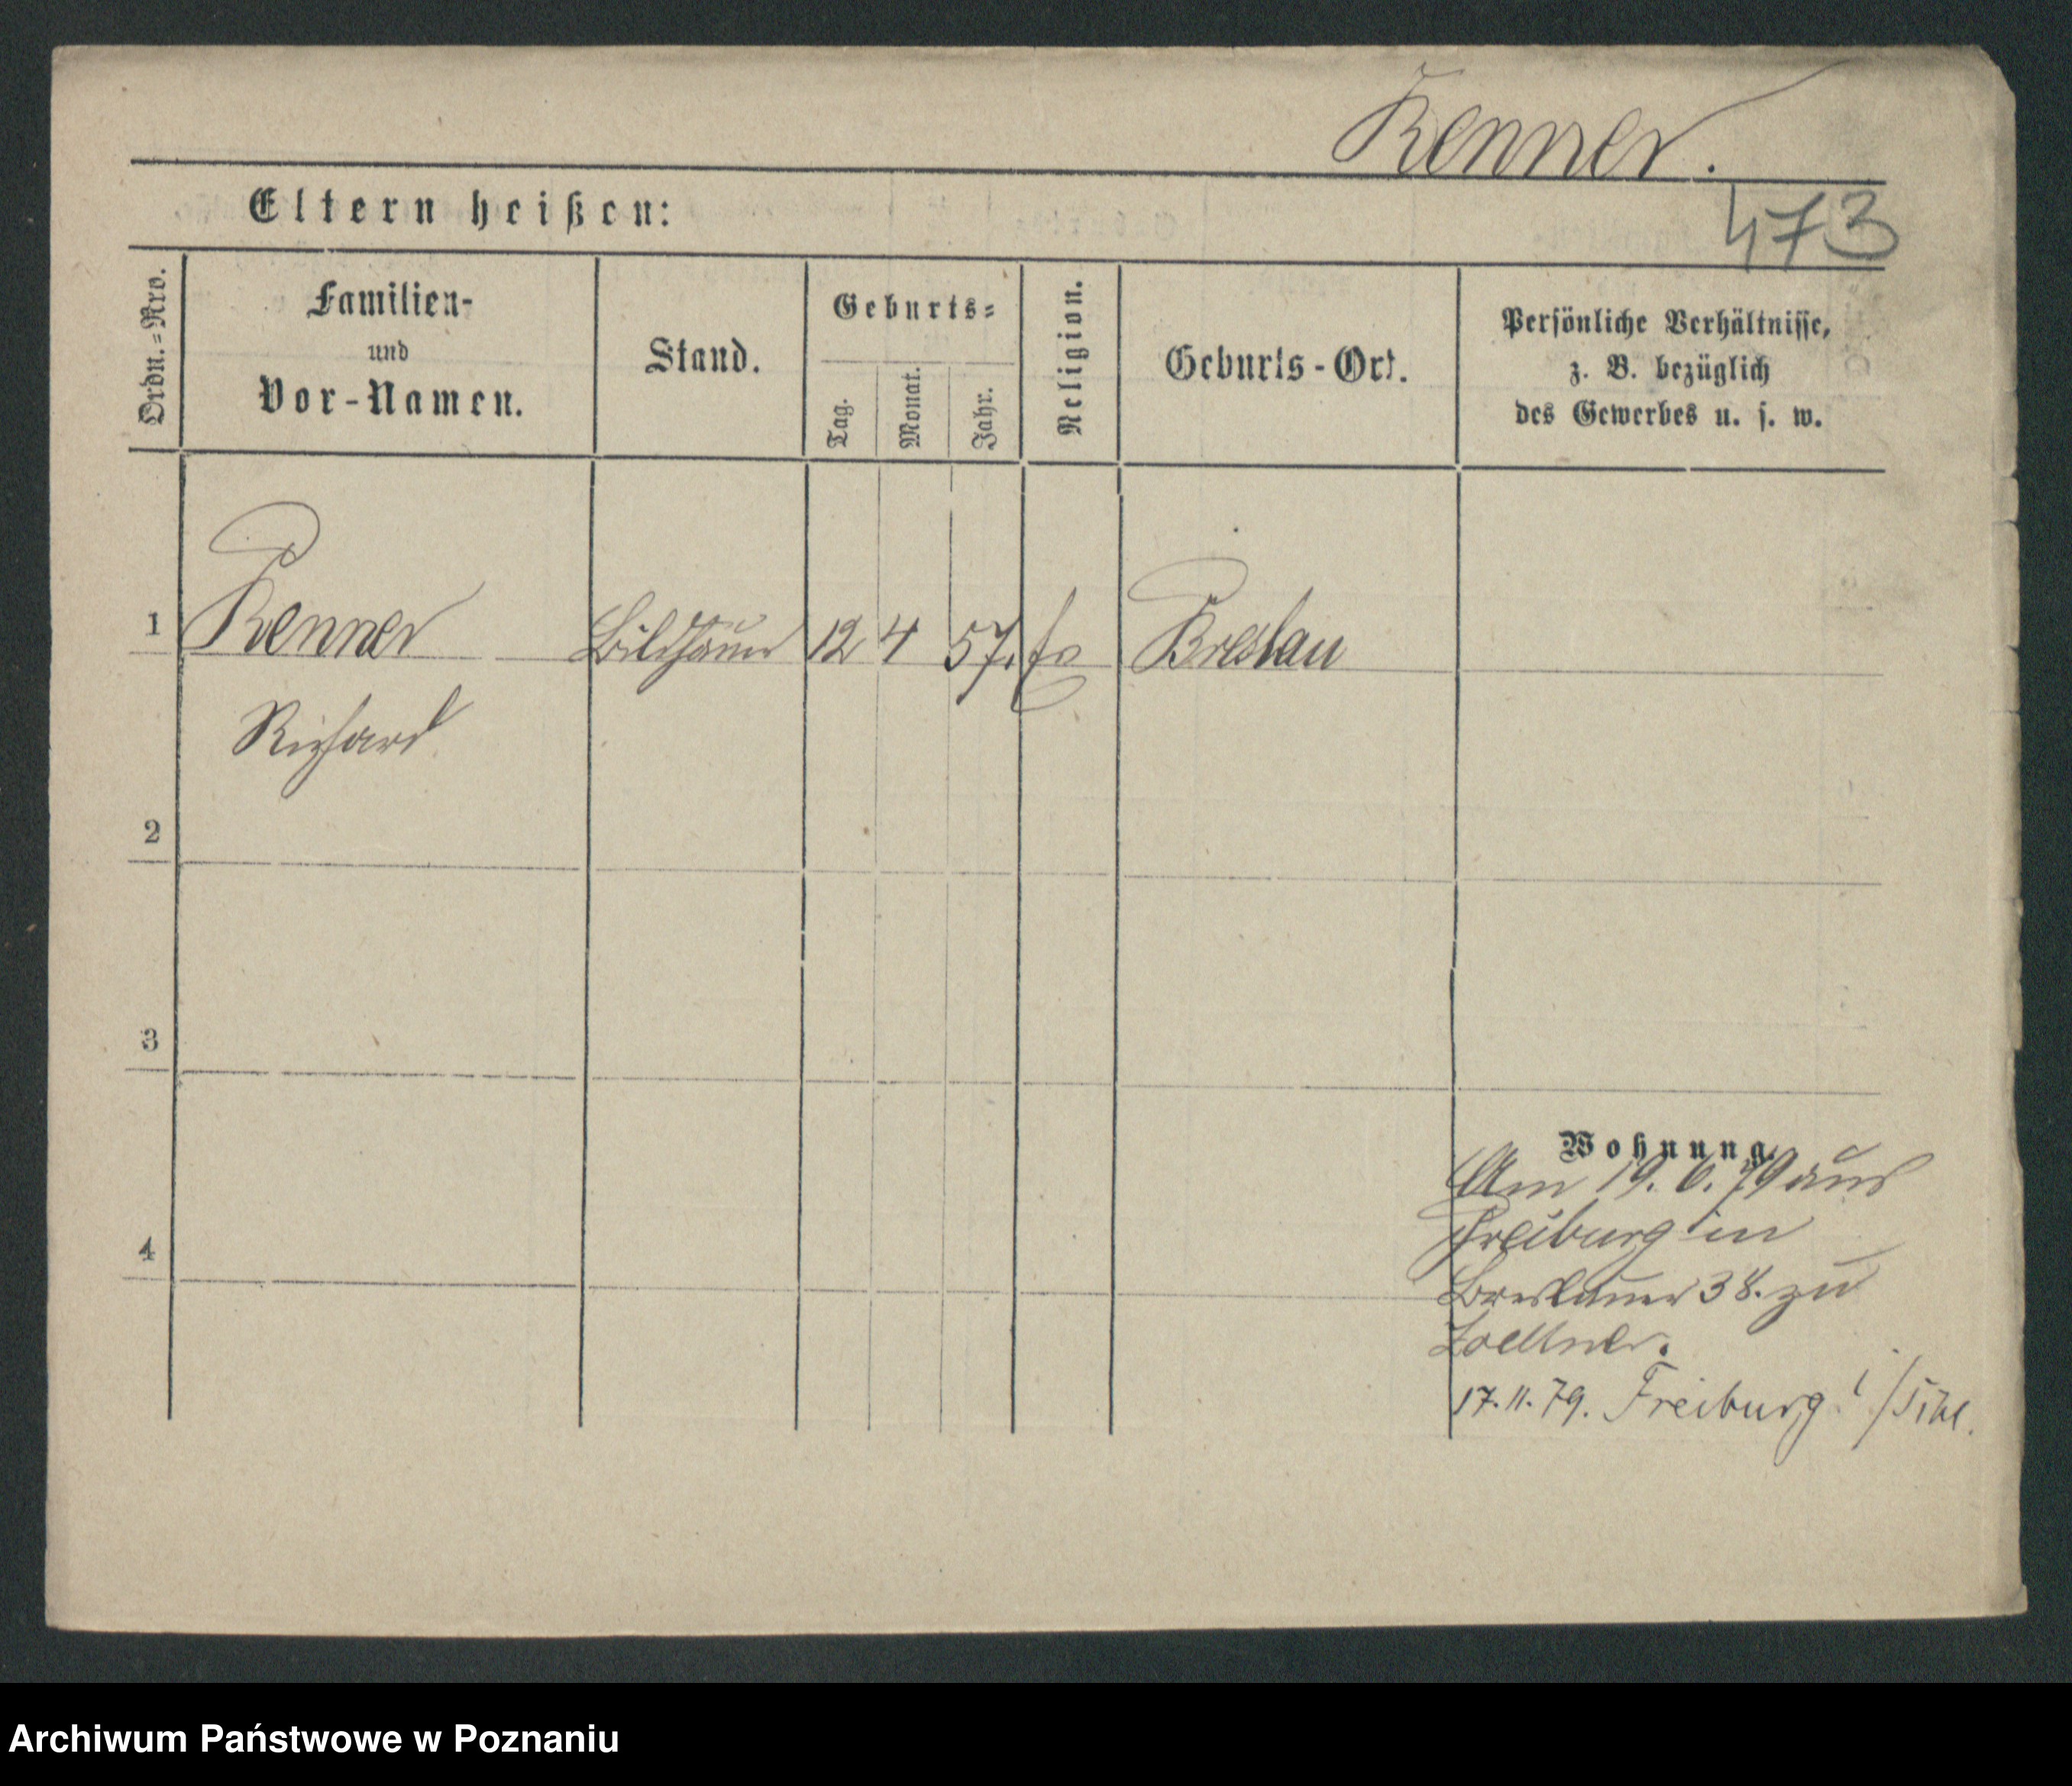 Renner.
Eltern heißen:
473
Ordn.-Nro.
Familien-
und
Vor-Namen.
Stand.
Geburts-
Tag.
Monat.
Jahr.
Religion.
Geburts-Ort.
Persönliche Verhältnisse,
z. B. bezüglich
des Gewerbes u. s. w.
1 Renner Bildhauer 12 4 57. Breslau
Richard
2
3
Wohnung.
Am 19. 6. 79 aus
4 Freiburg in
Breslauer 38. zu
Zoellner.
17.11.79. Freiburg i/Schl.
Archiwum Państwowe w Poznaniu